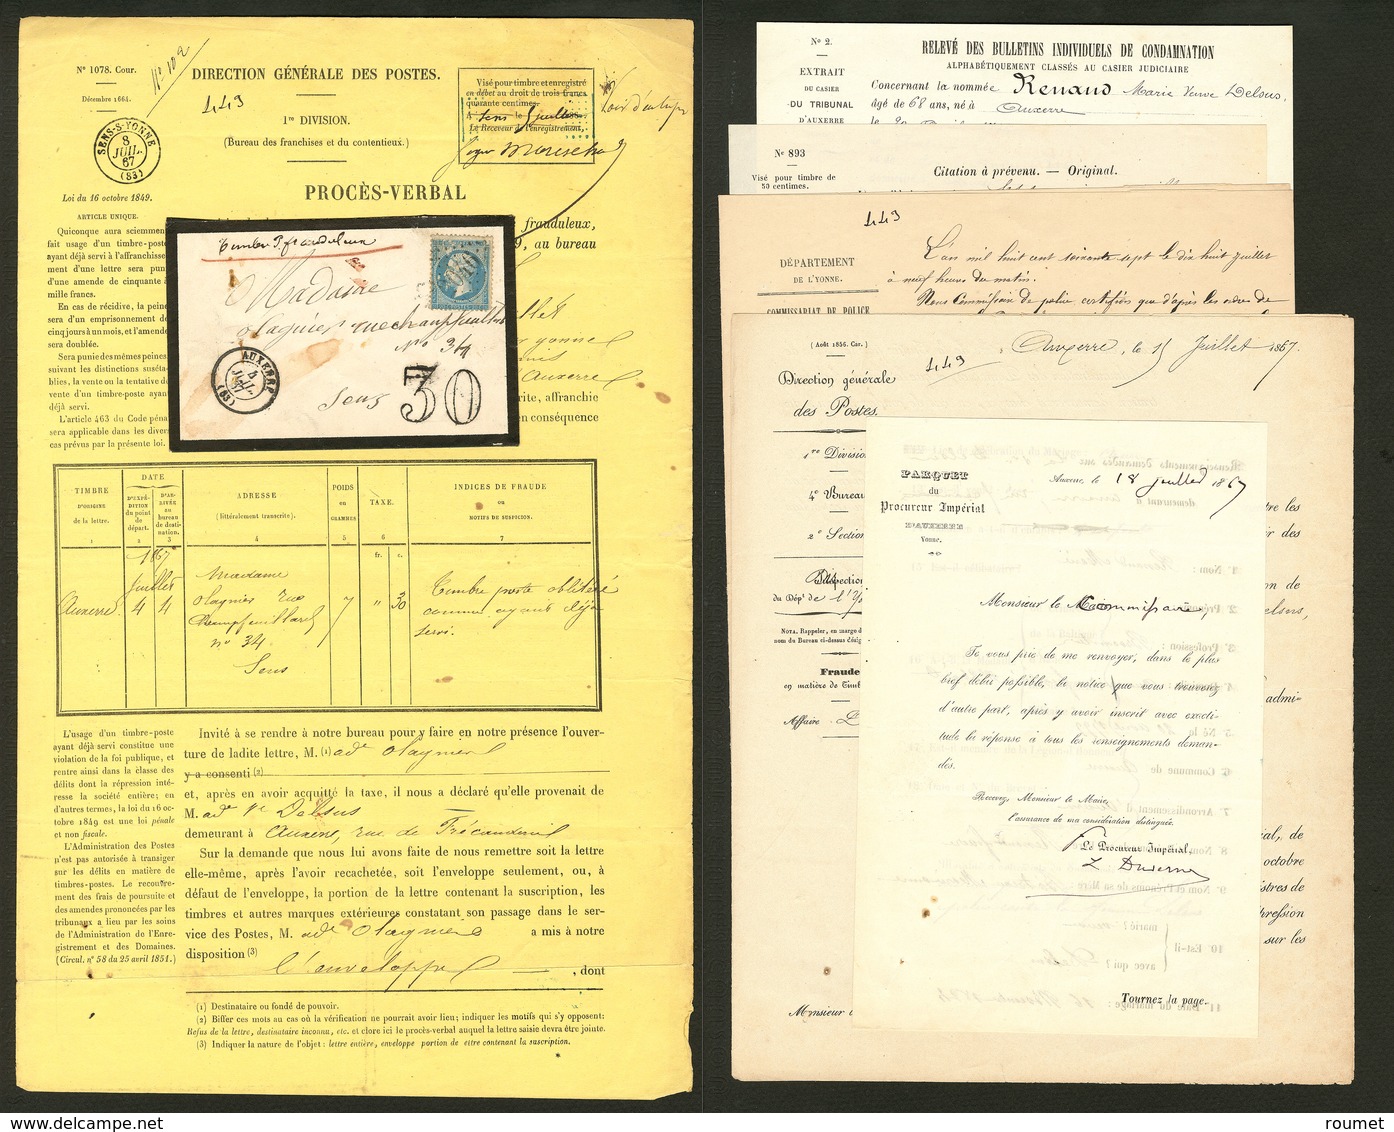 N° 1078. Cour.
Décembre 1664.
N° 102
DIRECTION GÉNÉRALE DES POSTES.
443
1re DIVISION.
(Bureau des franchises et du contentieux.)
PROCÈS-VERBAL
Visé pour timbre et enregistré
en débet au droit de trois francs
quarante centimes.
A Sens le 8 juillet
Le Receveur de l'enregistrement,
SENS-S-YONNE
8
JUIL.
67
(83)
Loi du 16 octobre 1849.
ARTICLE UNIQUE.
Quiconque aura sciemment
fait usage d'un timbre-poste
ayant déjà servi à l'affranchisse-
ment d'une lettre sera puni
d'une amende de cinquante à
mille francs.
En cas de récidive, la peine
sera d'un emprisonnement de
cinq jours à un mois, et l'amende
sera doublée.
Sera punie des mêmes peines,
suivant les distinctions suséta-
blies, la vente ou la tentative de
vente d'un timbre-poste ayant
déjà servi.
L'article 463 du Code pénal
sera applicable dans les divers
cas prévus par la présente loi.
frauduleux,
9, au bureau
d'Auxerre
rite, affranchie
en conséquence
timbre P. frauduleux
Madame
Olagnier rue champfeuillard
N° 34
Sens
AUXERRE
4
JUIL.
67
(83)
30
TIMBRE
D'ORIGINE
de la lettre.
1
DATE
D'EXPÉ-
DITION du
point de
départ.
2
D'AR-
RIVÉE au
bureau de
desti-
nation.
3
ADRESSE
(littéralement transcrite).
4
POIDS
en
GRAMMES
5
TAXE.
6
INDICES DE FRAUDE
ou
MOTIFS DE SUSPICION.
7
fr. c.
1867
Juillet
Auxerre 4 4
Madame
Olagnier rue
Champfeuillard
n° 34
Sens
7
" 30
Timbre poste oblitéré
comme ayant déjà
servi.
L'usage d'un timbre-poste
ayant déjà servi constitue une
violation de la foi publique, et
rentre ainsi dans la classe des
délits dont la répression inté-
resse la société entière; en
d'autres termes, la loi du 16 oc-
tobre 1849 est une loi pénale
et non fiscale.
L'Administration des Postes
n'est pas autorisée à transiger
sur les délits en matière de
timbres-postes. Le recouvre-
ment des frais de poursuite et
des amendes prononcées par les
tribunaux a lieu par les soins
de l'Administration de l'Enre-
gistrement et des Domaines.
(Circul. n° 58 du 25 avril 1851.)
Invité à se rendre à notre bureau pour y faire en notre présence l'ouver-
ture de ladite lettre, M. (1) ade Olagnier
y a consenti (2)
et, après en avoir acquitté la taxe, il nous a déclaré qu'elle provenait de
M. ade Ve Delsus
demeurant à Auxerre, rue de
Sur la demande que nous lui avons faite de nous remettre soit la lettre
elle-même, après l'avoir recachetée, soit l'enveloppe seulement, ou, à
défaut de l'enveloppe, la portion de la lettre contenant la suscription, les
timbres et autres marques extérieures constatant son passage dans le ser-
vice des Postes, M. ade Olagnier a mis à notre
disposition (3)
l'enveloppe , dont
(1) Destinataire ou fondé de pouvoir.
(2) Biffer ces mots au cas où la vérification ne pourrait avoir lieu; indiquer les motifs qui s'y opposent:
Refus de la lettre, destinataire inconnu, etc. et clore ici le procès-verbal auquel la lettre saisie devra être jointe.
(3) Indiquer la nature de l'objet : lettre entière, enveloppe portion de lettre contenant la suscription.
N° 2.
EXTRAIT
DU CASIER
DU TRIBUNAL
D'AUXERRE
RELEVÉ DES BULLETINS INDIVIDUELS DE CONDAMNATION
ALPHABÉTIQUEMENT CLASSÉS AU CASIER JUDICIAIRE
Concernant la nommée Renaud Marie Veuve Delsus,
âgé de 68 ans, né à Auxerre
N° 893
Visé pour timbre de
50 centimes.
Citation à prévenu. — Original.
443
DÉPARTEMENT
DE L'YONNE.
COMMISSARIAT DE POLICE
L'an mil huit cent soixante sept le dix huit juillet
à neuf heures du matin.
Nous Commissaire de police certifions que d'après les ordres de
(Août 1856. Car.)
443
Auxerre, le 15 Juillet 1867.
Direction générale
des Postes.
1re Division
4e Bureau
2e Section
du Dépt de l'Y
NOTA. Rappeler, en marge d
nom du Bureau ci-dessus désig
Fraude
en matière de Timb
Affaire
tre les
ir des
on de
elsus,
admi-
ial, de
octobre
istres de
pression
sur les
Monsieur
PARQUET
du
Procureur Impérial
D'AUXERRE
Yonne.
Auxerre, le 18 juillet 1867
Monsieur le Commissaire,
Je vous prie de me renvoyer, dans le plus
bref délai possible, la notice que vous trouverez
d'autre part, après y avoir inscrit avec exacti-
tude la réponse à tous les renseignements deman-
dés.
Recevez, Monsieur le Maire,
l'assurance de ma considération distinguée.
Le Procureur Impérial,
Tournez la page.
roumet